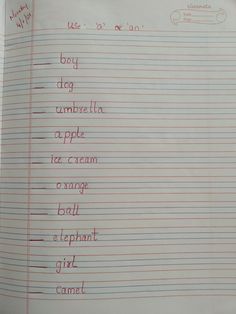 classmate
Date
Page
Use 'a' or 'an'
___ boy
___ dog
___ umbrella
___ apple
___ ice cream
___ orange
___ ball
___ elephant
___ girl
___ camel